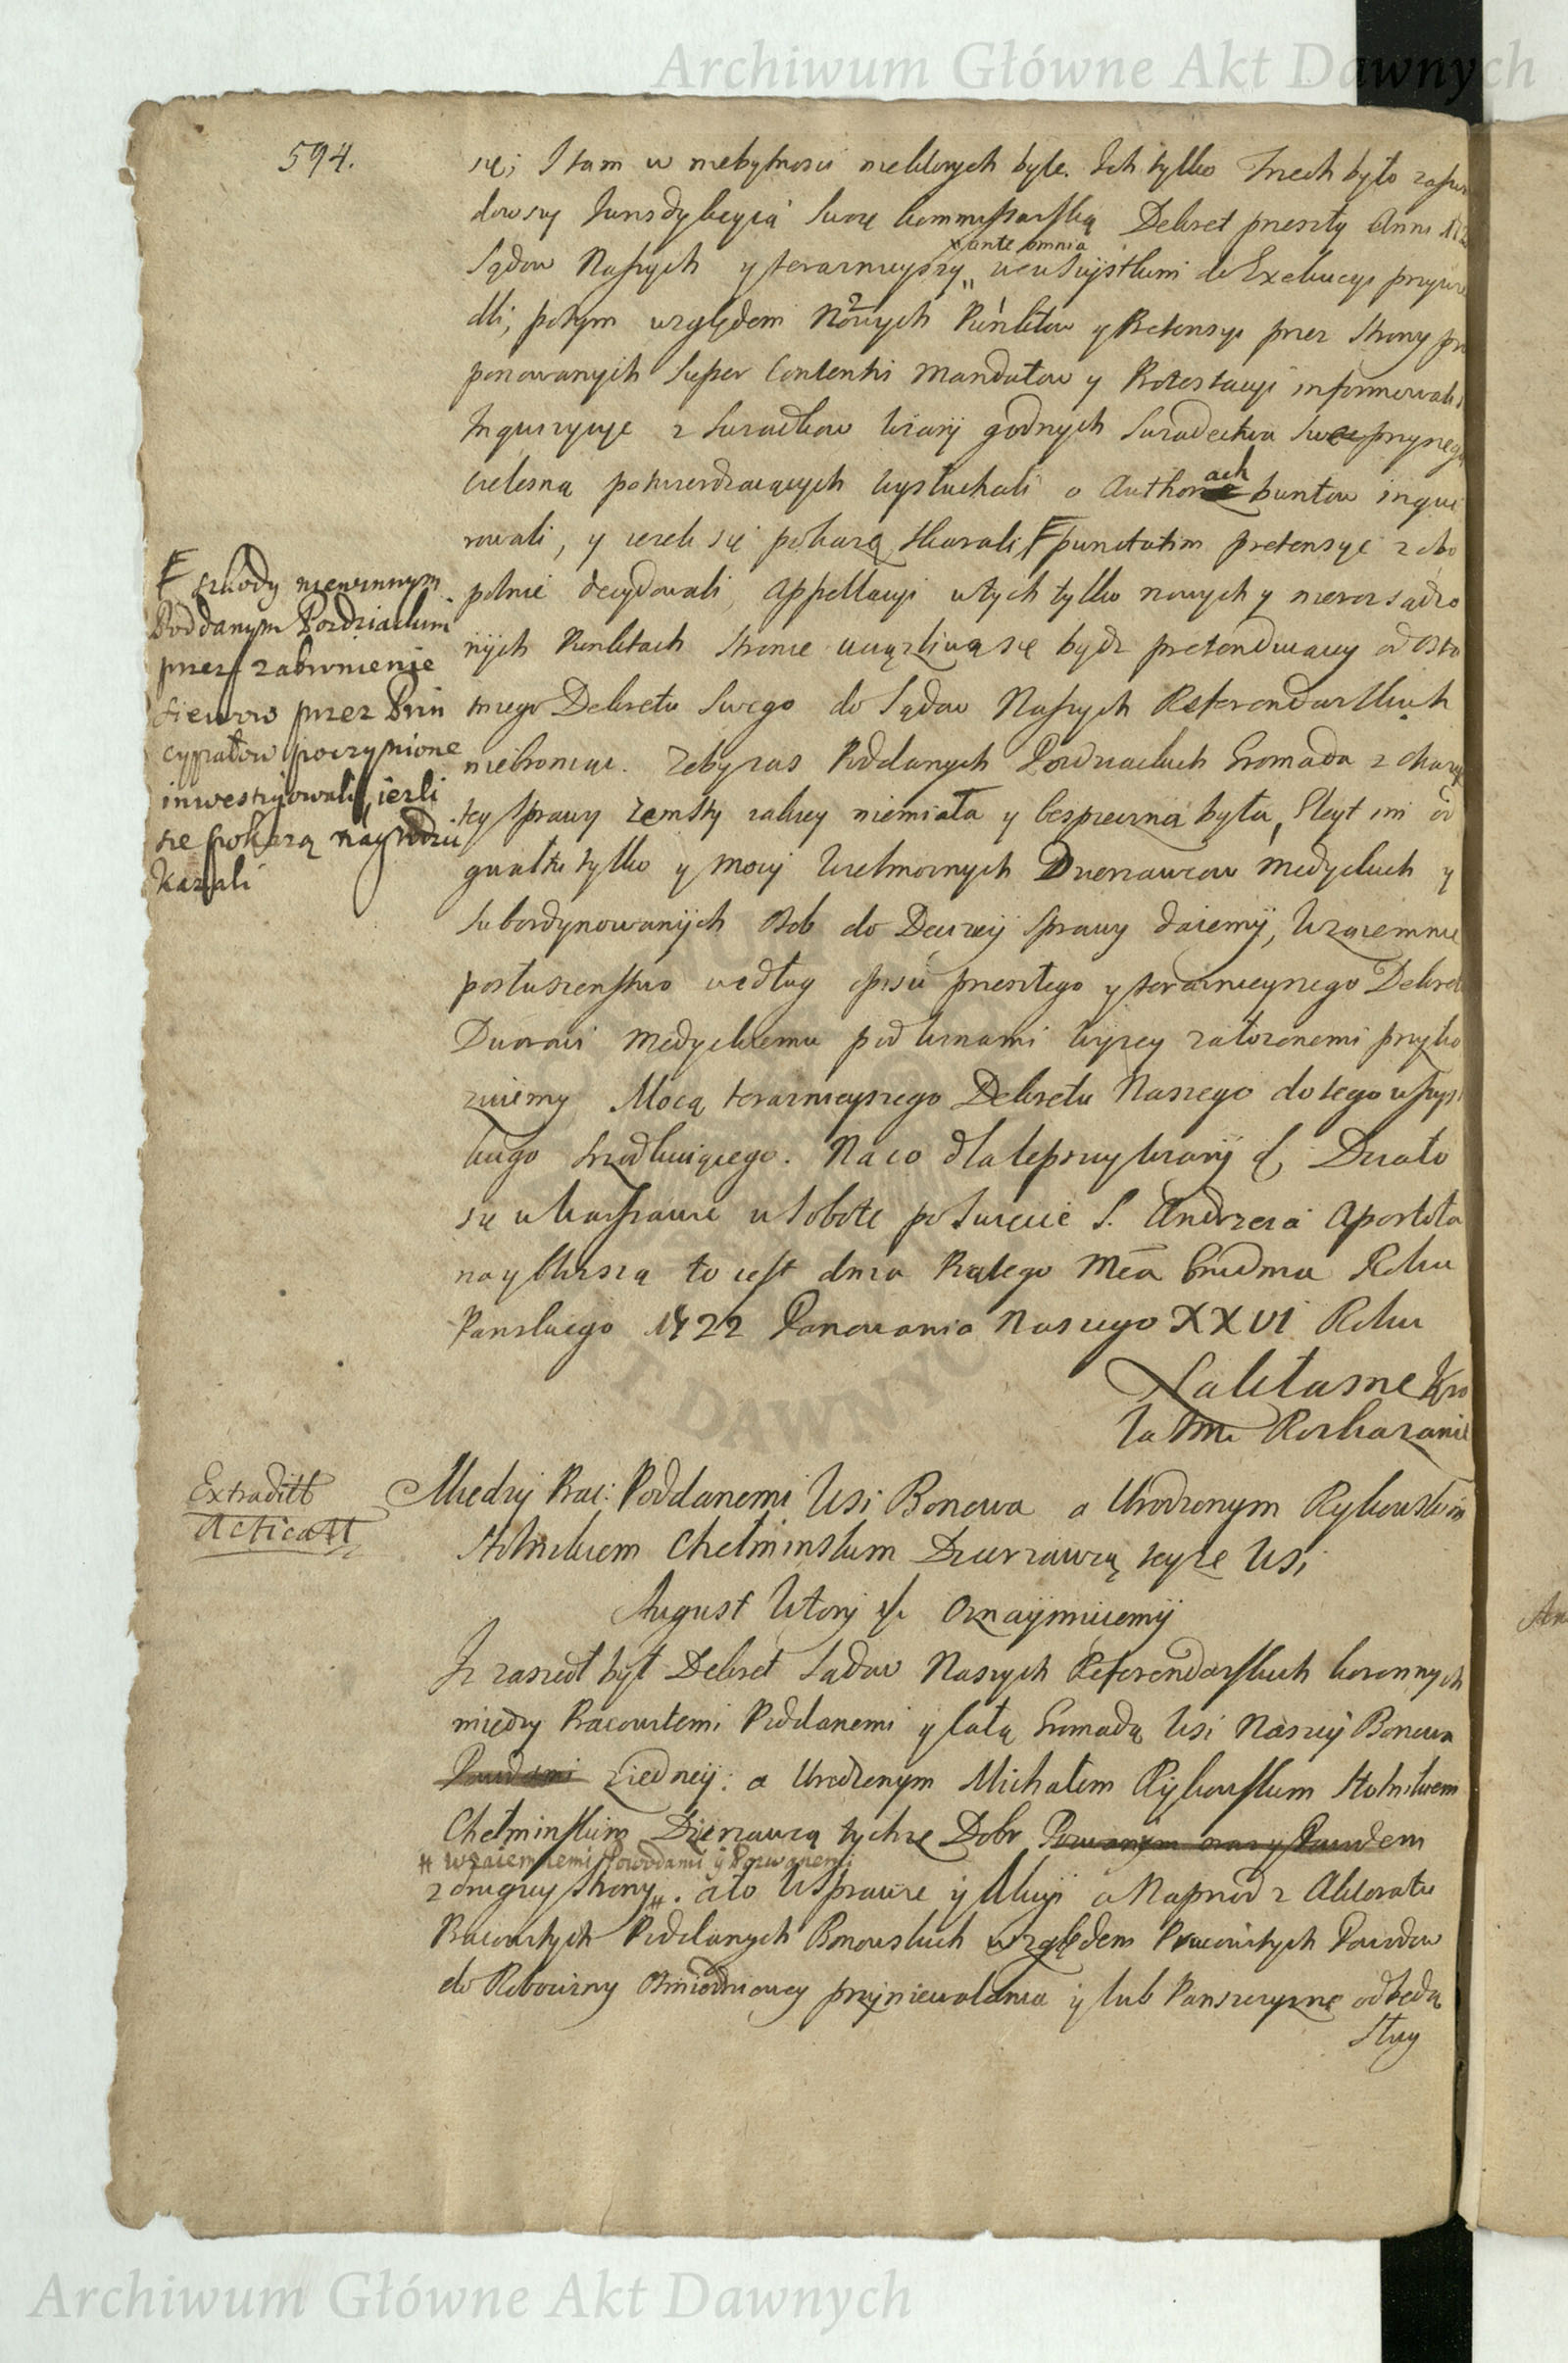 Archiwum Główne Akt Dawnych
594.
się; I tam w niebytnosci niektorych byle Ich tylko Trzech było zafun
dowszy Jurisdykcyią swoię kommissarską Dekret przeszły Anni
x ante omnia
Sądow Naszych y teraznieyszy do Exekucyi przywie
dli, potym względem Nowych Punktow y Pretensyi przez Strony pro
ponowanych super Contentis Mandatow y Protestacyi informowali
Inquizycyje z Swiadkow wiary godnych Swiadectwa swe przysięgą
cielesną potwierdzaiących wysłuchali o Authorach buntow inqui
rowali, y ieżeli się pokażą skarali, F punctatim pretensye zobo
polnie decydowali, Appellacyi w tych tylko nowych y nierozsądzo
nych Punktach Stronie uciązliwą się bydź pretenduiącey od osta
tniego Dekretu swego do Sądow Naszych Referendarskich
niebroniąc. Zeby zas Poddanych Gromada z okazyi
tey sprawy zemsty zadney niemiała y bespieczna była, Gleyt im od
gwałtu tylko y mocy Wielmoznych Dzierzawcow Medyckich y
subordynowanych Osob do Decizyi sprawy daiemy, Wzaiemnie
posłuszenstwo według opisu przeszłego y teraznieyszego Dekretu
Dworowi Medyckiemu pod winami wyzey załozonemi przyka
zuiemy Mocą teraznieyszego Dekretu Naszego do tego wszys
tkiego srzodkuiącego. Na co dla lepszey wiary &c Działo
się w Warszawie w Sobotę po Swięcie S. Andrzeia Apostoła
nayblizszą to iest dnia Piątego Mca Grudnia Roku
Panskiego 1722 Panowania Naszego XXVI Roku
Na Własne Kro
la Jmci Roskazanie
F szkody niewinnym
Poddanym Pozdziackim
przez zabronienie
siewow przez Prin
cypałow poczynione
inwestygowali, iezli
się pokażą nagrodzić
kazali
Extraditt
Acticatt
Między Prac: Poddanemi Wsi Bonowa a Urodzonym Rykowskim
Stolnikiem Chełminskim Dzierzawcą teyze Wsi
August Wtory &c Oznaymuiemy
Iz zaszedł był Dekret Sądow Naszych Referendarskich koronnych
między Pracowitemi Poddanemi y całą Gromadą Wsi Naszey Bonowa
z iedney: a Urodzonym Michałem Rykowskim Stolnikiem
Chełminskim Dzierzawcą tychze Dobr
# wzaiemnemi Powodami y Pozwanemi
z drugiey strony. ato W sprawie y Akcyi a Naprzod z Aktoratu
Pracowitych Poddanych Bonowskich względem Pracowitych Powodow
do Robocizny przyniewalania y lub Panszczyznę odbędą
Sług
Archiwum Główne Akt Dawnych